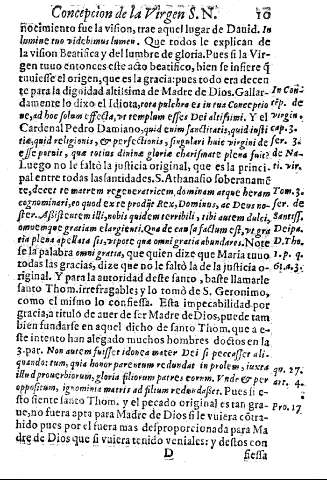 Concepcion de la Virgen S. N. 10
nocimiento fue la vision, trae aquel lugar de Dauid. In
lumine tuo videbimus lumen. Que todos le explican de
la vision Beatifica y del lumbre de gloria. Pues si la Vir-
gen tuuo entonces este acto beatifico, bien se infiere q̃
tuuiesse el origen, que es la gracia: pues todo era decen
te para la dignidad altissima de Madre de Dios. Gallar-
damente lo dixo el Idiota, tota pulchra es in tua Conceptio
ne, ad hoc solum effecta, vt templum esses Dei altissimi. Y el
Cardenal Pedro Damiano, quid enim sanctitatis, quid iusti
tiæ, quid religionis, & perfectionis, singulari huic virgini de
esse potuit, quæ totius diuinæ gloriæ charismate plena fuit?
Luego no le faltò la justicia original, que es la princi-
pal entre todas las santidades. S. Athanasio soberaname
te, decet te matrem regeneratricem, dominam atque heram
cognominari, eo quod ex te prodijt Rex, Dominus, ac Deus no-
ster. Assistentem illi, nobis quidem terribili, tibi autem dulci,
omnemque gratiam elargienti. Qua de causa factum est, vt gra
tia plena apellata sis, vt pote quæ omni gratia abundares. Note
se la palabra omni gratia, que quien dize que Maria tuuo
todas las gracias, dize que no le faltò la de la justicia o-
riginal. Y para la autoridad deste santo, baste llamarle
santo Thom. irrefragable; y lo tomò de S. Geronimo,
como el mismo lo confiessa. Esta impecabilidad por
gracia, a titulo de auer de ser Madre de Dios, puede tam
bien fundarse en aquel dicho de santo Thom. que a es-
te intento han alegado muchos hombres doctos en la
3. par. Non autem fuisset idonea mater Dei si peccasset ali-
quando: tum, quia honor parentum redundat in prolem, iuxta
illud prouerbiorum, gloria filiorum patres eorum. Vnde & per
oppositum, ignominia matris ad filium redundasset. Pues si es-
to siente santo Thom. y el pecado original es tan gra-
ue, no fuera apta para Madre de Dios si le vuiera cõtra-
hido pues por el fuera mas desproporcionada para Ma
dre de Dios que si vuiera tenido veniales: y destos con
D fiessa
In Cõ-
tẽp. de
Virg. c.
cap. 3.
ser. 3.
de Na-
ti. vir.
Tom. 3.
ser. de
Santiss.
Deipa-
ra.
D. Tho.
1. p. q.
61. a. 3.
qu. 27.
art. 4.
Pro. 17